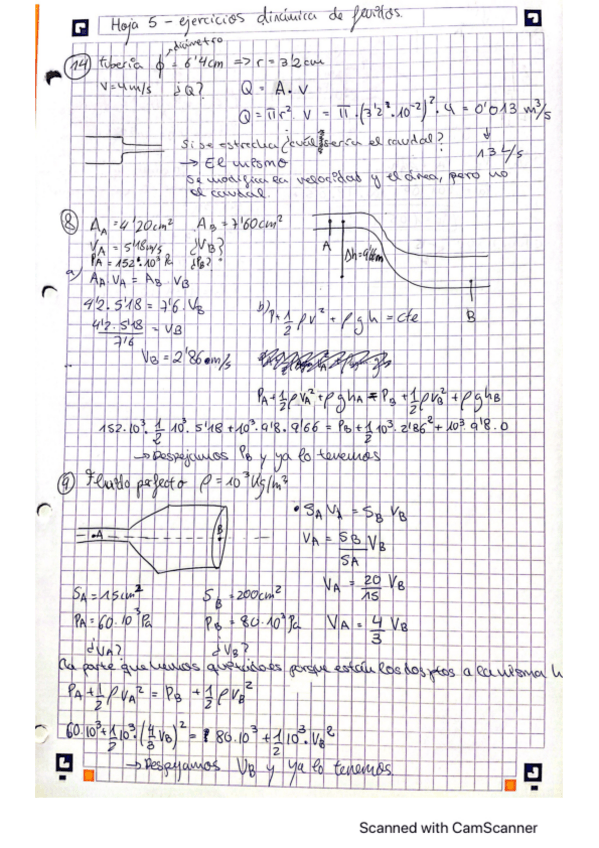 Hoja 5 - ejercicios dinámica de fluidos.
diámetro
14 tubería ϕ = 6'4cm => r = 3'2cm
V=4m/s ¿Q? Q = A.v
Q = πr². V = π.(3'2.10⁻²)². 4 = 0'013 m³/s
Si se estrecha ¿cuál sería el caudal?
13 L/s
→ El mismo
Se modifica la velocidad y el área, pero no
el caudal.
8 A_A = 4'20cm² A_B = 7'60cm²
V_A = 5'18m/s ¿V_B?
P_A = 152.10³ Pa ¿P_B?
A
Δh=9'66m
B
a) A_A.V_A = A_B.V_B
4'2.5'18 = 7'6.V_B
4'2.5'18 / 7'6 = V_B
V_B = 2'86 m/s
b) P+1/2 ρv² + ρgh = cte
P_A+1/2 ρV_A²+ρgh_A = P_B+1/2 ρV_B²+ρgh_B
152.10³.1/2 10³.5'18+10³.9'8.9'66 = P_B+1/2 10³.2'86²+10³.9'8.0
→ Despejamos P_B y ya lo tenemos
9 Fluido perfecto ρ=10³Kg/m³
A
B
• S_A V_A = S_B V_B
V_A = S_B/S_A V_B
V_A = 20/15 V_B
V_A = 4/3 V_B
S_A = 15cm² S_B = 200cm²
P_A = 60.10³Pa P_B = 80.10³Pa
¿V_A? ¿V_B?
porque están los dos ptos a la misma h
P_A+1/2 ρV_A² = P_B +1/2 ρV_B²
60.10³+1/2 10³.(4/3 V_B)² = 80.10³+1/2 10³.V_B²
→ Despejamos V_B y ya lo tenemos.
Scanned with CamScanner